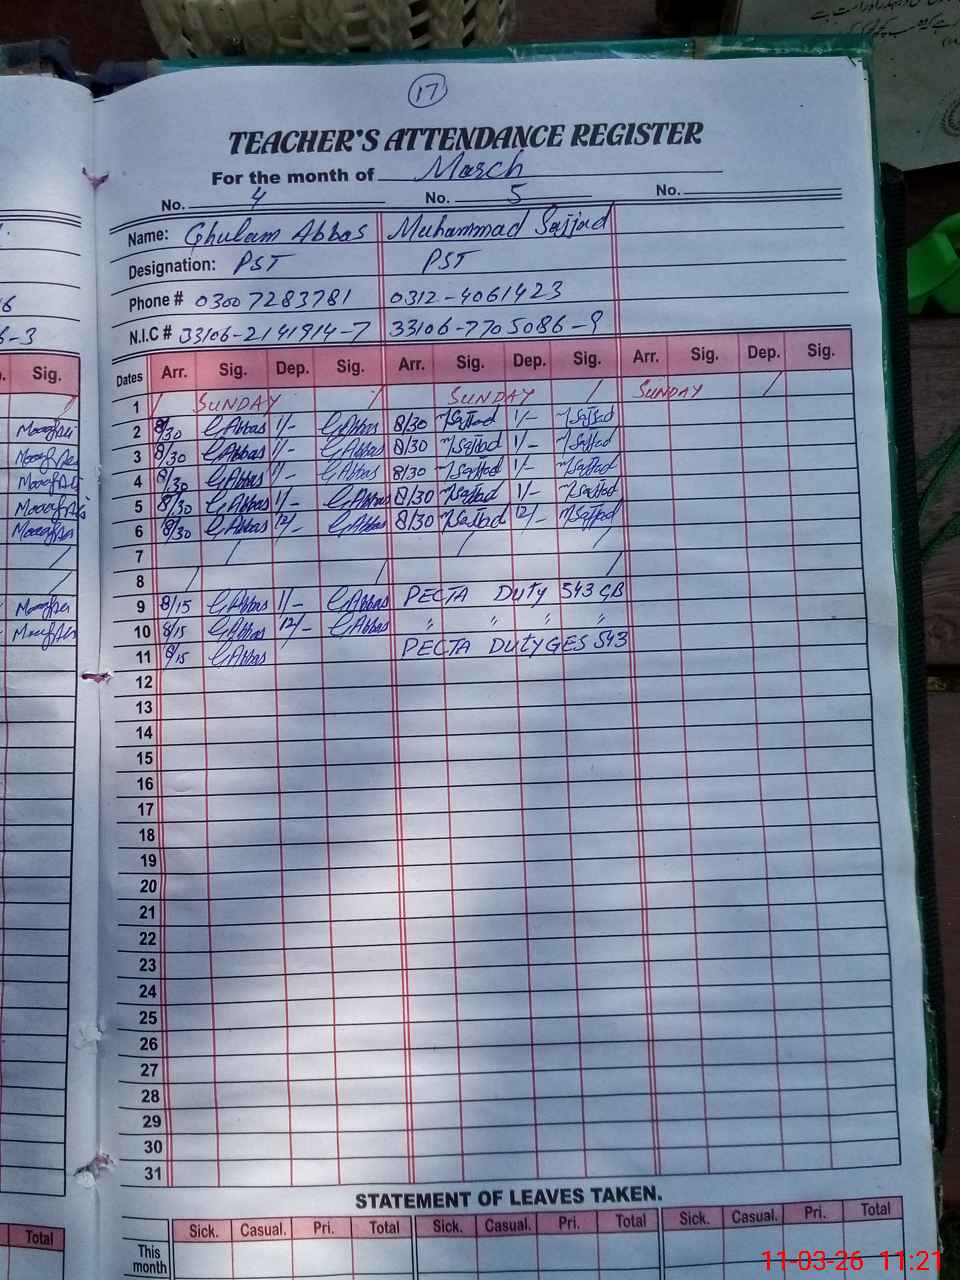 17
TEACHER'S ATTENDANCE REGISTER
For the month of March
No. 4 No. 5 No.
Name: Ghulam Abbas Muhammad Sajjad
Designation: PST PST
Phone # 0300 7283781 0312-4061423
N.I.C # 33106-2141914-7 33106-7705086-9
Sig. Dates Arr. Sig. Dep. Sig. Arr. Sig. Dep. Sig. Arr. Sig. Dep. Sig.
1 / SUNDAY / SUNDAY / SUNDAY /
2 8/30 GAbbas 1/- GAbbas 8/30 MSajjad 1/- MSajjad
3 8/30 GAbbas 1/- GAbbas 8/30 MSajjad 1/- MSajjad
4 8/30 GAbbas 1/- GAbbas 8/30 MSajjad 1/- MSajjad
5 8/30 GAbbas 1/- GAbbas 8/30 MSajjad 1/- MSajjad
6 8/30 GAbbas 12/- GAbbas 8/30 MSajjad 12/- MSajjad
7 / / /
8 / / /
9 8/15 GAbbas 1/- GAbbas PECTA Duty 543 GB
10 8/15 GAbbas 12/- GAbbas " " " "
11 8/15 GAbbas PECTA Duty GES 543
12
13
14
15
16
17
18
19
20
21
22
23
24
25
26
27
28
29
30
31
STATEMENT OF LEAVES TAKEN.
Total Sick. Casual. Pri. Total Sick. Casual. Pri. Total Sick. Casual. Pri. Total
This month
11-03-26 11:21